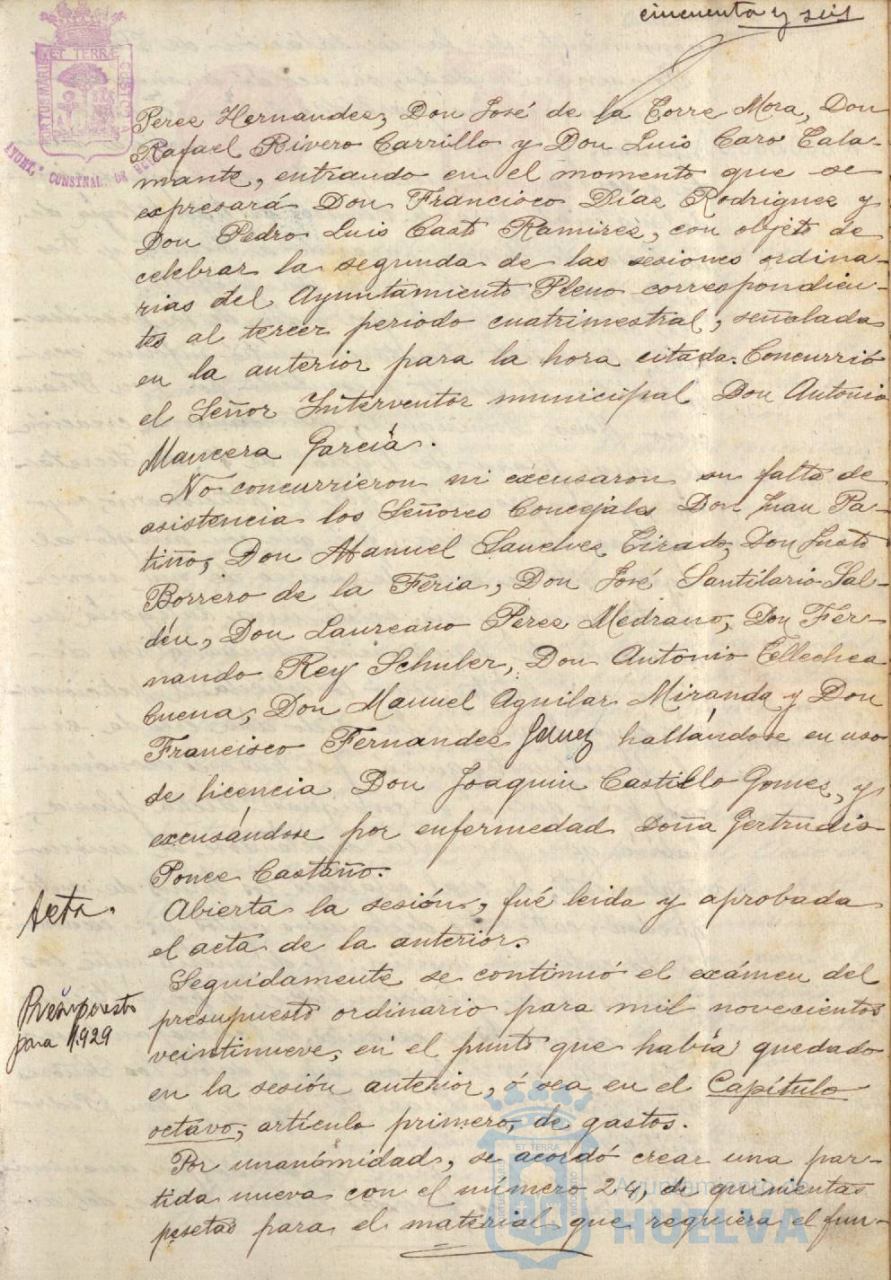 cincuenta y seis
PORTUS MARIS ET TERRÆ CUSTODIA
AYUNT. CONSTNAL. DE
Perez Hernandez, Don José de la Torre Mora, Don
Rafael Rivero Carrillo y Don Luis Caro Cala-
mante, entrando en el momento que se
expresará Don Francisco Díaz Rodriguez y
Don Pedro Luis Casto Ramirez, con objeto de
celebrar la segunda de las sesiones ordina-
rias del Ayuntamiento Pleno correspondien-
tes al tercer periodo cuatrimestral, señalada
en la anterior para la hora citada. Concurrió
el Señor Interventor municipal Don Antonio
Mancera García.
No concurrieron ni excusaron su falta de
asistencia los Señores Concejales Don Juan Pa-
tiño, Don Manuel Sanchez Tirado, Don Justo
Borrero de la Feria, Don José Santilario Sal-
déu, Don Laureano Perez Medrano, Don Fer-
nando Rey Schuler, Don Antonio Tellechea
Cuena, Don Manuel Aguilar Miranda y Don
Francisco Fernandez hallándose en uso
de licencia Don Joaquin Castillo Gomez, y
excusándose por enfermedad Doña Gertrudis
Ponce Castaño.
Acta.
Abierta la sesión, fué leida y aprobada
el acta de la anterior.
Presupuesto
para 1.929
Seguidamente se continuó el exámen del
presupuesto ordinario para mil novecientos
veintinueve, en el punto que había quedado
en la sesión anterior, ó sea en el Capítulo
octavo, artículo primero, de gastos.
Por unanimidad, se acordó crear una par-
tida nueva con el número 24, de quinientas
pesetas para el material que requiera el fun-
Ayuntamiento de
HUELVA